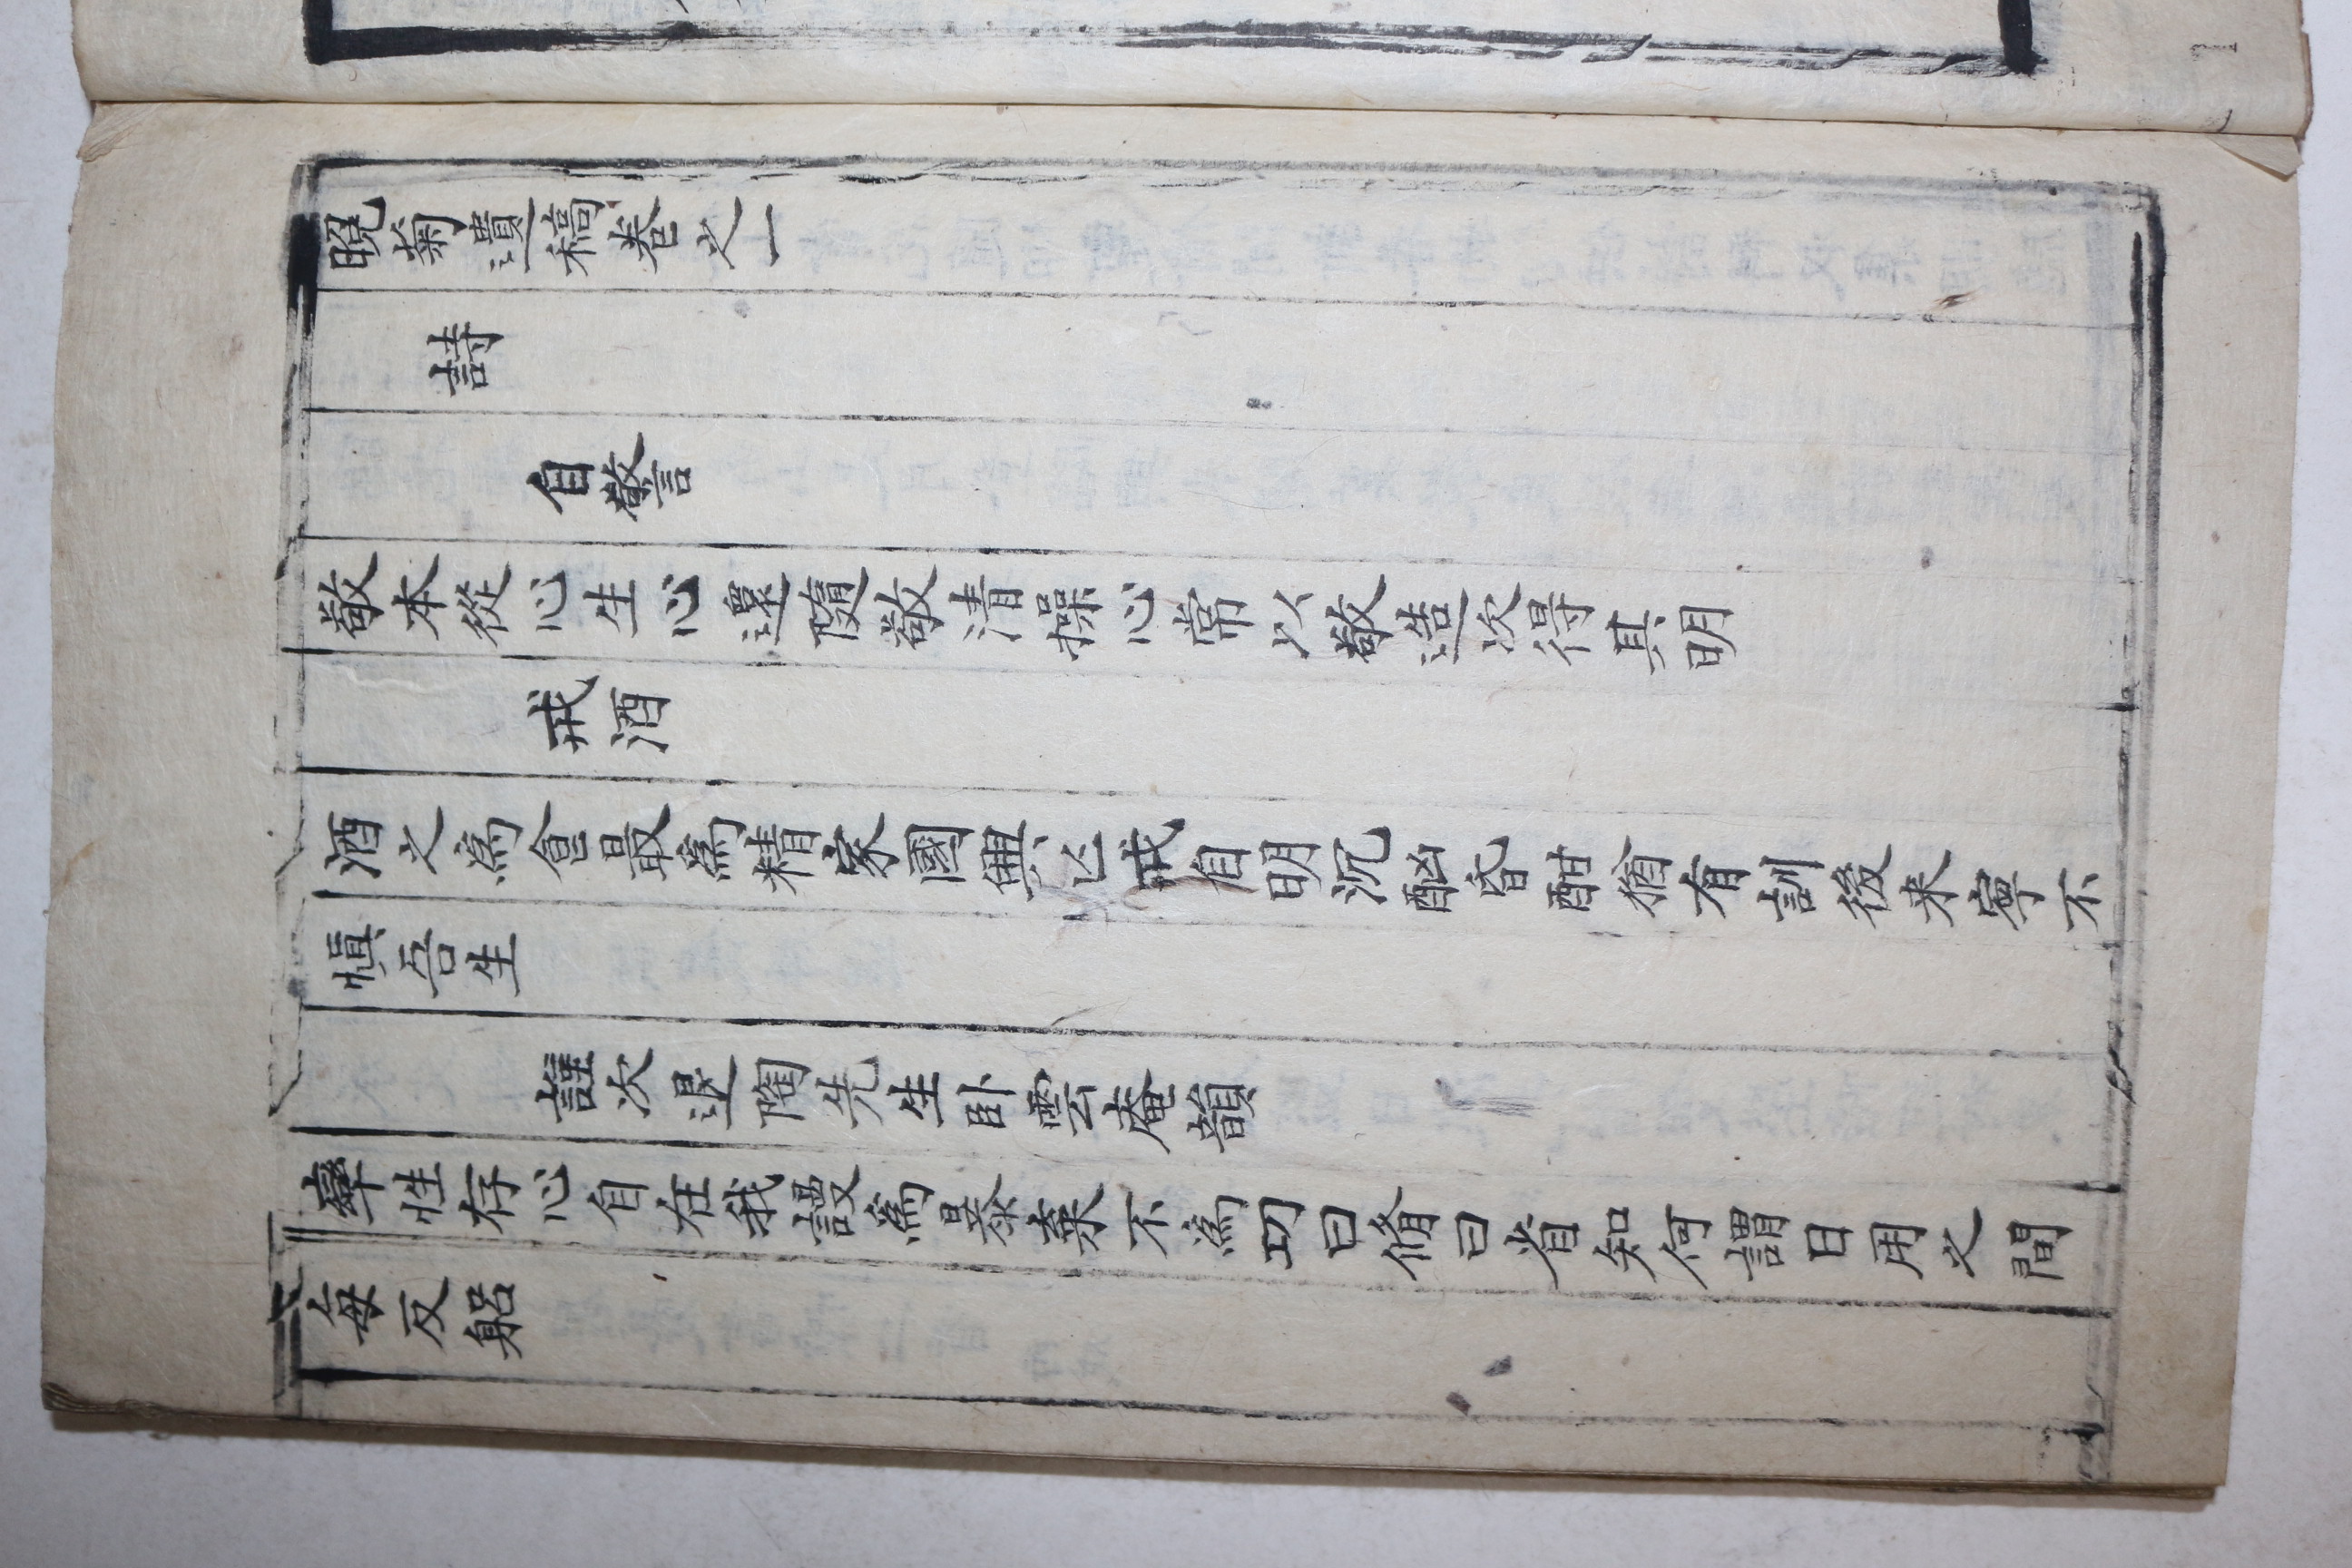 晩菊遺稿卷之一
詩
自警
敬本從心生心還隨敬清操心常以敬造次得其明
戒酒
酒之爲食最爲精家國興亡戒自明沉酗昏酣猶有訓後来寧不
愼吾生
謹次退陶先生卧雲庵韻
率性存心自在我謾爲暴棄不爲功曰脩曰省知何謂日用之間
每反躳